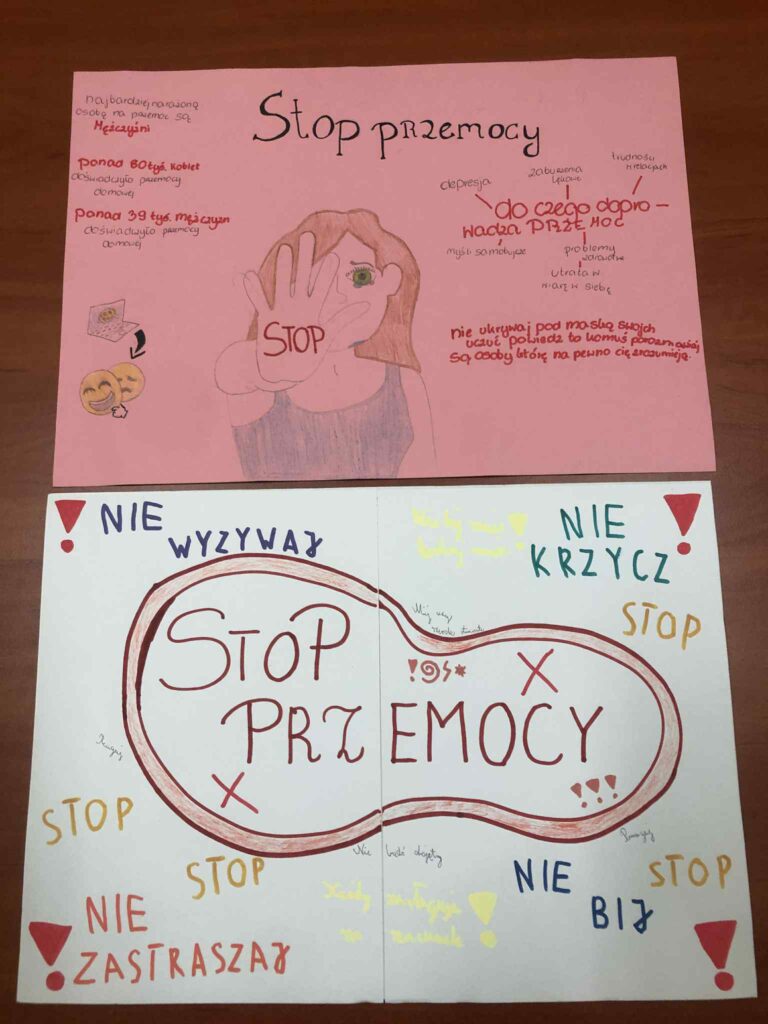 Stop przemocy
najbardziej narażoną
osobą na przemoc są
Mężczyźni
ponad 60tyś. kobiet
doświadczyło przemocy
domowej
ponad 39 tyś. mężczyzn
doświadczyło przemocy
domowej
STOP
depresja
zaburzenia
lękowe
trudności
w relacjach
do czego dopro-
wadza PRZEMOC
myśli samobójcze
problemy
zdrowotne
utrata w
wiarę w siebie
nie ukrywaj pod maską swoich
uczuć powiedz to komuś porozmawiaj
są osoby które na pewno cię zrozumieją.
NIE
WYZYWAJ
NIE
KRZYCZ
STOP
STOP
PRZEMOCY
!@$*
X
X
!!!
Reaguj
STOP
STOP
Nie bądź obojętny
NIE
BIJ
STOP
NIE
ZASTRASZAJ
Każdy zasługuje !
na szacunek